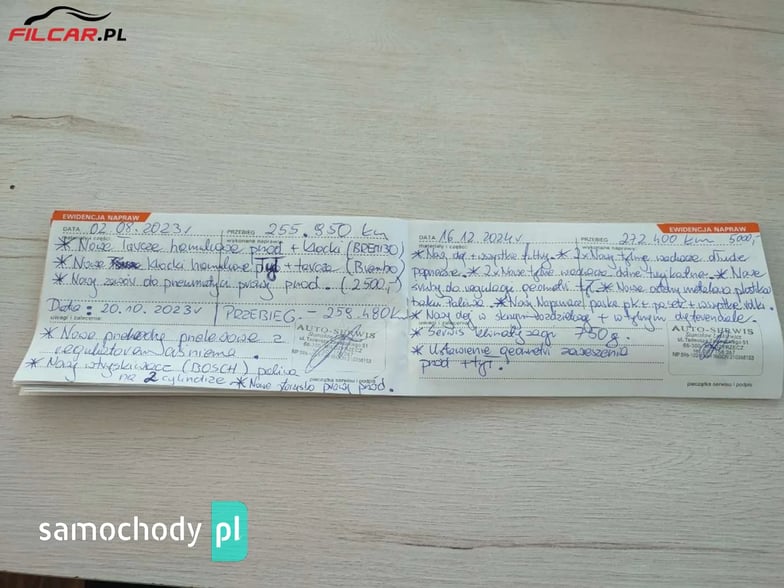 FILCAR.PL
EWIDENCJA NAPRAW
DATA 02.08.2023r PRZEBIEG 255.950 km
materiały i części: wykonane naprawy:
* Nowe tarcze hamulcowe przód + klocki (BREMBO)
* Nowe klocki hamulcowe Tył + tarcze (Brembo)
* Nowy zawór do pneumatyki prawy przód. (2500,-)
Data: 20.10.2023r PRZEBIEG. - 259.480K
uwagi i zalecenia:
* Nowe przekładnie z
regulatorem ciśnienia.
* Nowy wtryskiwacz (BOSCH) paliwa
na 2 cylindrze * Nowe prawy przód.
AUTO-SERWIS
pieczątka serwisu i podpis
EWIDENCJA NAPRAW
DATA 16.12.2024r PRZEBIEG 272 400 km 5000,-
materiały i części: wykonane naprawy:
* Nowy olej + wszystkie filtry. * 2x Nowy tylne wahacze długie
poprzeczne. * 2x Nowe tylne wahacze dolne * Nowe
śruby do regulacji geometrii tył. * Nowe metalowa
baku paliwa. * Nowy Napinacz paska pk + pasek + wszystkie rolki.
* Nowy olej w skrzyni rozdzielczej + w tylnym dyferencjale.
uwagi i zalecenia:
* Serwis klimatyzacji 750g.
* Ustawienie geometrii zawieszenia
przód + tył.
AUTO-SERWIS
pieczątka serwisu i podpis
samochody pl